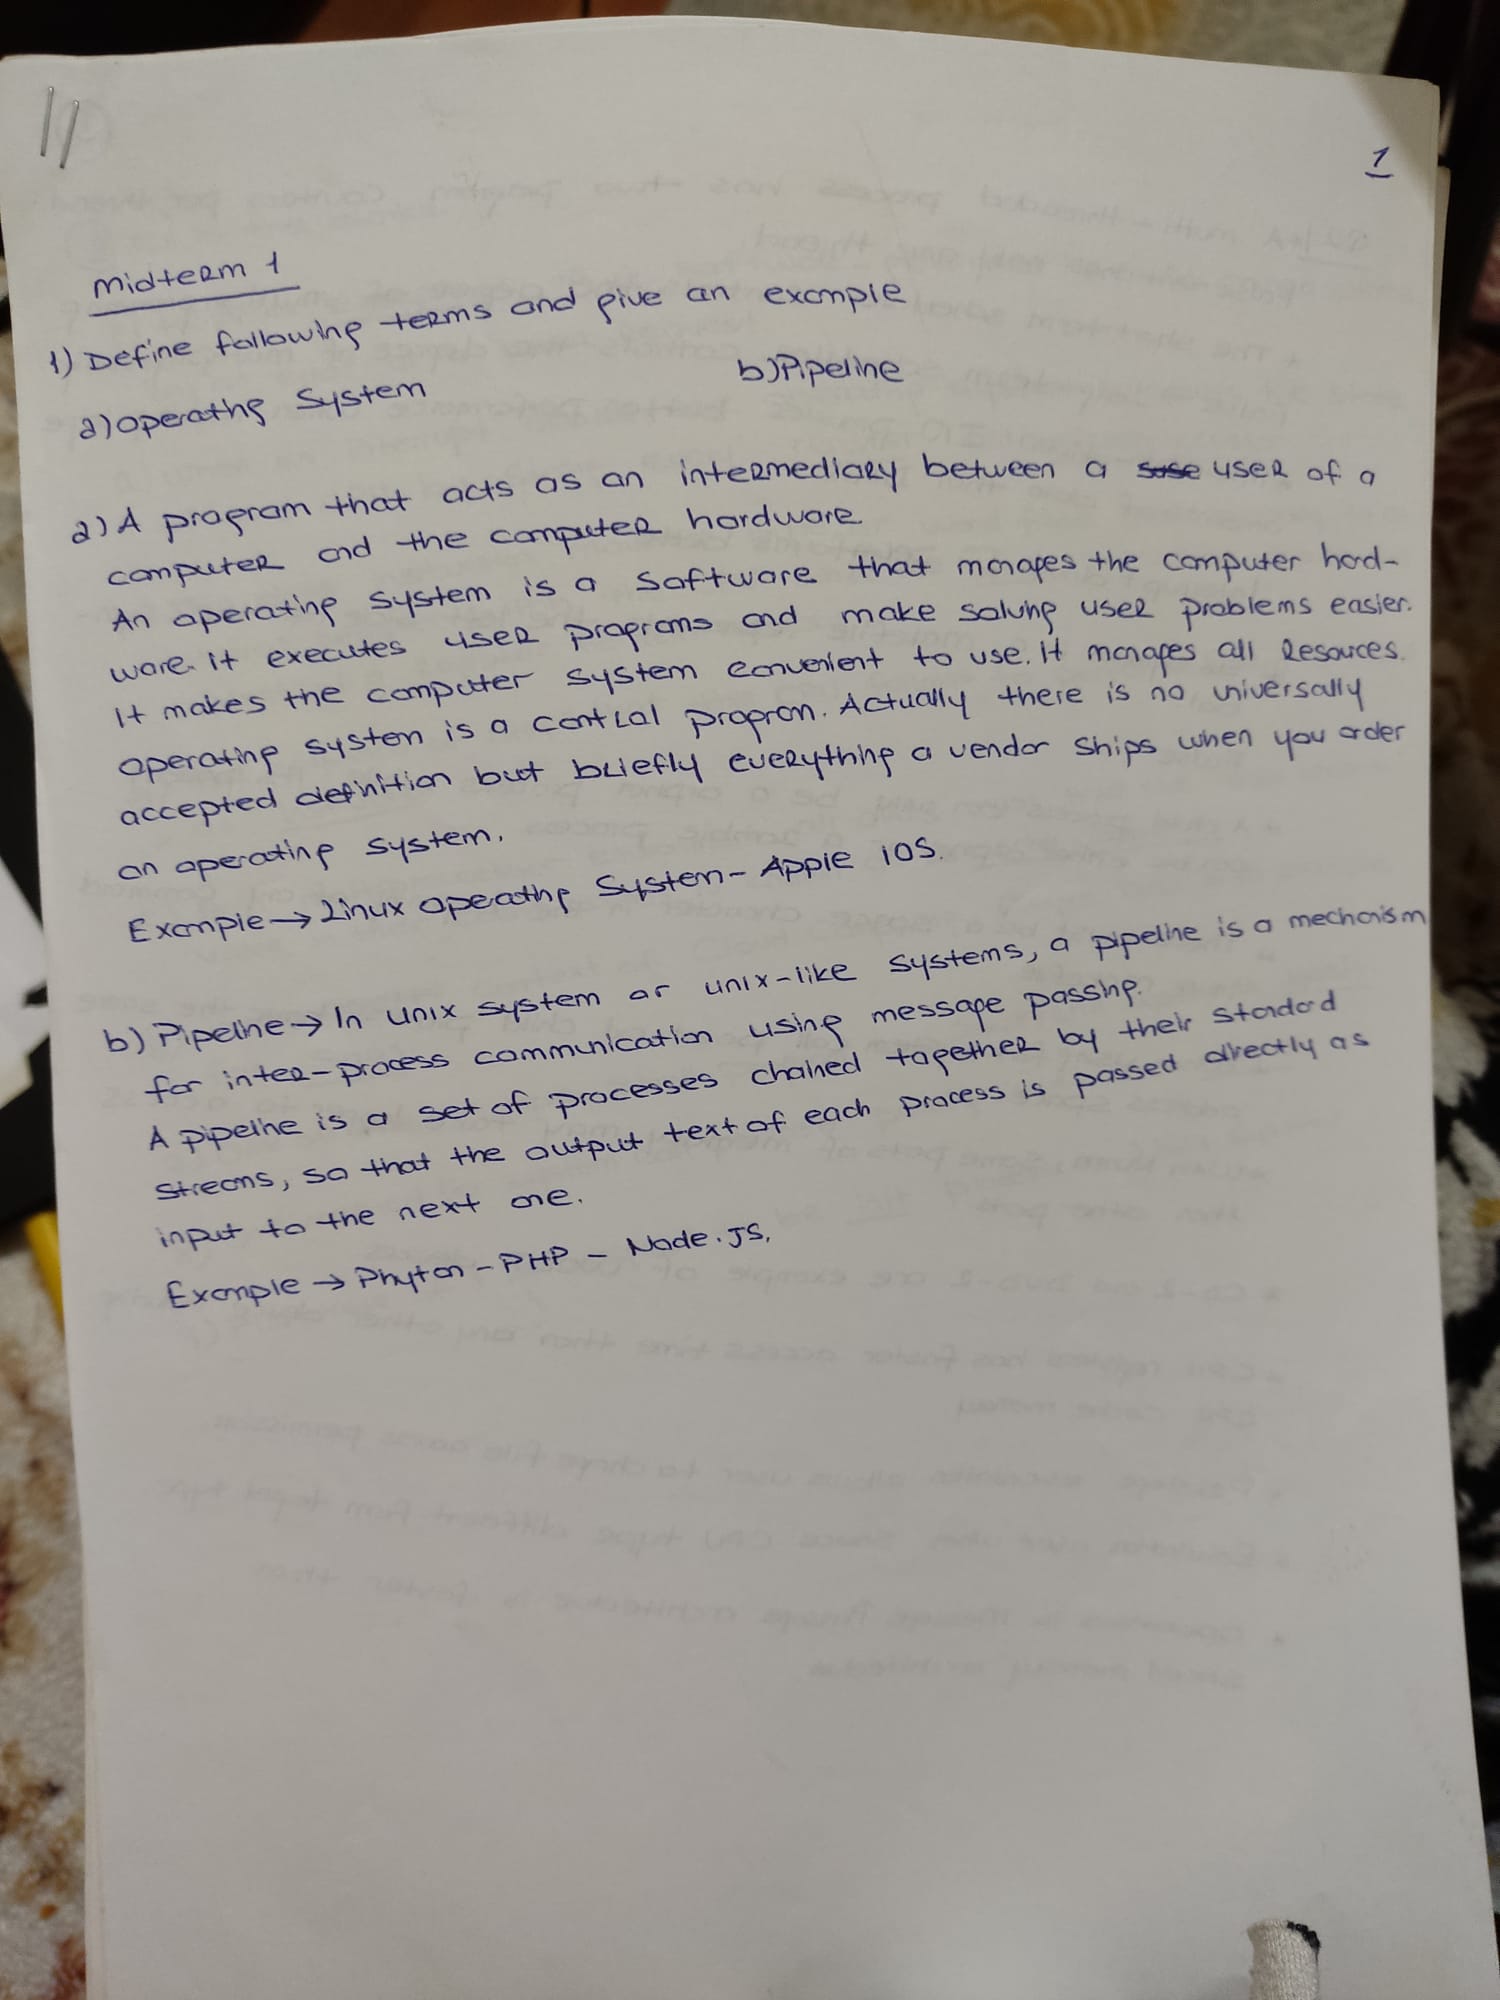 1
Midterm 1
1) Define following terms and give an example
a) operating System b) Pipeline
a) A program that acts as an intermediary between a user of a
computer and the computer hardware.
An operating system is a software that manages the computer hard-
ware. it executes user programs and make solving user problems easier.
It makes the computer system convenient to use. it manages all Resources.
operating system is a control program. Actually there is no universally
accepted definition but briefly everything a vendor ships when you order
an operating system.
Example → Linux operating System - Apple iOS.
b) Pipeline → In unix system or unix-like systems, a pipeline is a mechanism
for inter-process communication using message passing.
A pipeline is a set of processes chained together by their standard
streams, so that the output text of each process is passed directly as
input to the next one.
Example → Phyton - PHP - Node.JS.